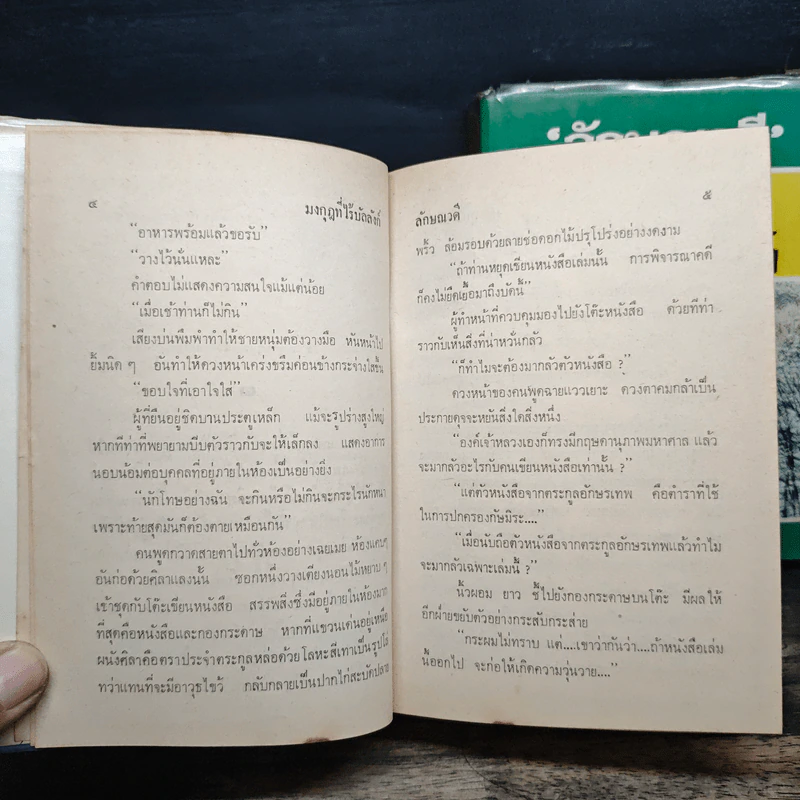 ๔
มงกุฎที่ไร้บัลลังก์
“อาหารพร้อมแล้วขอรับ”
“วางไว้นั่นแหละ”
คำตอบไม่แสดงความสนใจแม้แต่น้อย
“เมื่อเช้าท่านก็ไม่กิน”
เสียงบ่นพึมพำทำให้ชายหนุ่มต้องวางมือ หันหน้าไป
ยิ้มนิด ๆ อันทำให้ดวงหน้าเคร่งขรึมค่อนข้างกระจ่างใสขึ้น
“ขอบใจที่เอาใจใส่”
ผู้ที่ยืนอยู่ชิดบานประตูเหล็ก แม้จะรูปร่างสูงใหญ่
หากทีท่าที่พยายามบีบตัวราวกับจะให้เล็กลง แสดงอาการ
นอบน้อมต่อบุคคลที่อยู่ภายในห้องเป็นอย่างยิ่ง
“นักโทษอย่างฉัน จะกินหรือไม่กินจะกระไรนักหนา
เพราะท้ายสุดมันก็ต้องตายเหมือนกัน”
คนพูดกวาดสายตาไปทั่วห้องอย่างเฉยเมย ห้องแคบๆ
อันก่อด้วยศิลาแลงนั้น ซอกหนึ่งวางเตียงนอนไม้หยาบ ๆ
เข้าชุดกับโต๊ะเขียนหนังสือ สรรพสิ่งซึ่งมีอยู่ภายในห้องมาก
ที่สุดคือหนังสือและกองกระดาษ หากที่แขวนเด่นอยู่เหนือ
ผนังศิลาคือตราประจำตระกูลหล่อด้วยโลหะสีเทาเป็นรูปโล่
ทว่าแทนที่จะมีอาวุธไขว้ กลับกลายเป็นปากไก่สะบัดปลาย
ลักษณวดี
๕
พริ้ว ล้อมรอบด้วยลายช่อดอกไม้ปรุโปร่งอย่างงดงาม
“ถ้าท่านหยุดเขียนหนังสือเล่มนั้น การพิจารณาคดี
ก็คงไม่ยืดเยื้อมาถึงบัดนี้”
ผู้ทำหน้าที่ควบคุมมองไปยังโต๊ะหนังสือ ด้วยทีท่า
ราวกับเห็นสิ่งที่น่าหวั่นกลัว
“ก็ทำไมจะต้องมากลัวตัวหนังสือ ?”
ดวงหน้าของคนพูดฉายแววเยาะ ดวงตาคมกล้าเป็น
ประกายดุจจะหยันสิ่งใดสิ่งหนึ่ง
“องค์เจ้าหลวงเองก็ทรงมีกฤษดานุภาพมหาศาล แล้ว
จะมากลัวอะไรกับคนเขียนหนังสือเท่านั้น ?”
“แต่ตัวหนังสือจากตระกูลอักษรเทพ คือตำราที่ใช้
ในการปกครองกัษมิระ....”
“เมื่อนับถือตัวหนังสือจากตระกูลอักษรเทพแล้วทำไม
จะมากลัวเฉพาะเล่มนี้ ?”
นิ้วผอม ยาว ชี้ไปยังกองกระดาษบนโต๊ะ มีผลให้
อีกฝ่ายขยับตัวอย่างกระสับกระส่าย
“กระผมไม่ทราบ แต่....เขาว่ากันว่า....ถ้าหนังสือเล่ม
นี้ออกไป จะก่อให้เกิดความวุ่นวาย....”